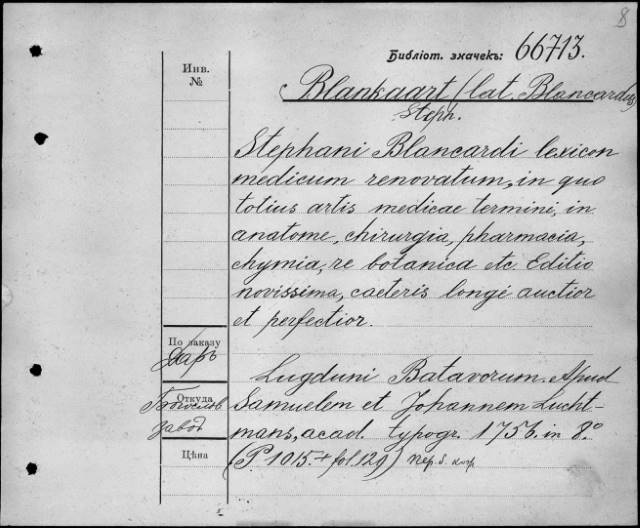 8
Библіот. значекъ: 66713.
Инв.
№
Blankaart (lat. Blancardus)
Steph.
Stephani Blancardi lexicon
medicum renovatum, in quo
totius artis medicae termini, in
anatome, chirurgia, pharmacia,
chymia, re botanica etc. Editio
novissima, caeteris longè auctior
et perfectior.
По заказу
Даръ
Lugduni Batavorum. Apud
Откуда
Богослов.
Samuelem et Johannem Lucht-
завод
mans, acad. typogr. 1756. in 8.°
Цѣна
(P. 1015. + fol. 129) пер. б. кор